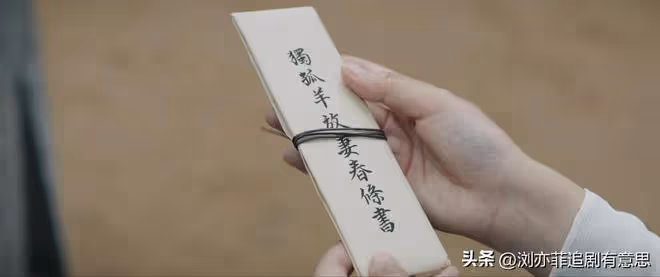 獨孤羊放妻春條書
头条 @浏亦菲追剧有意思